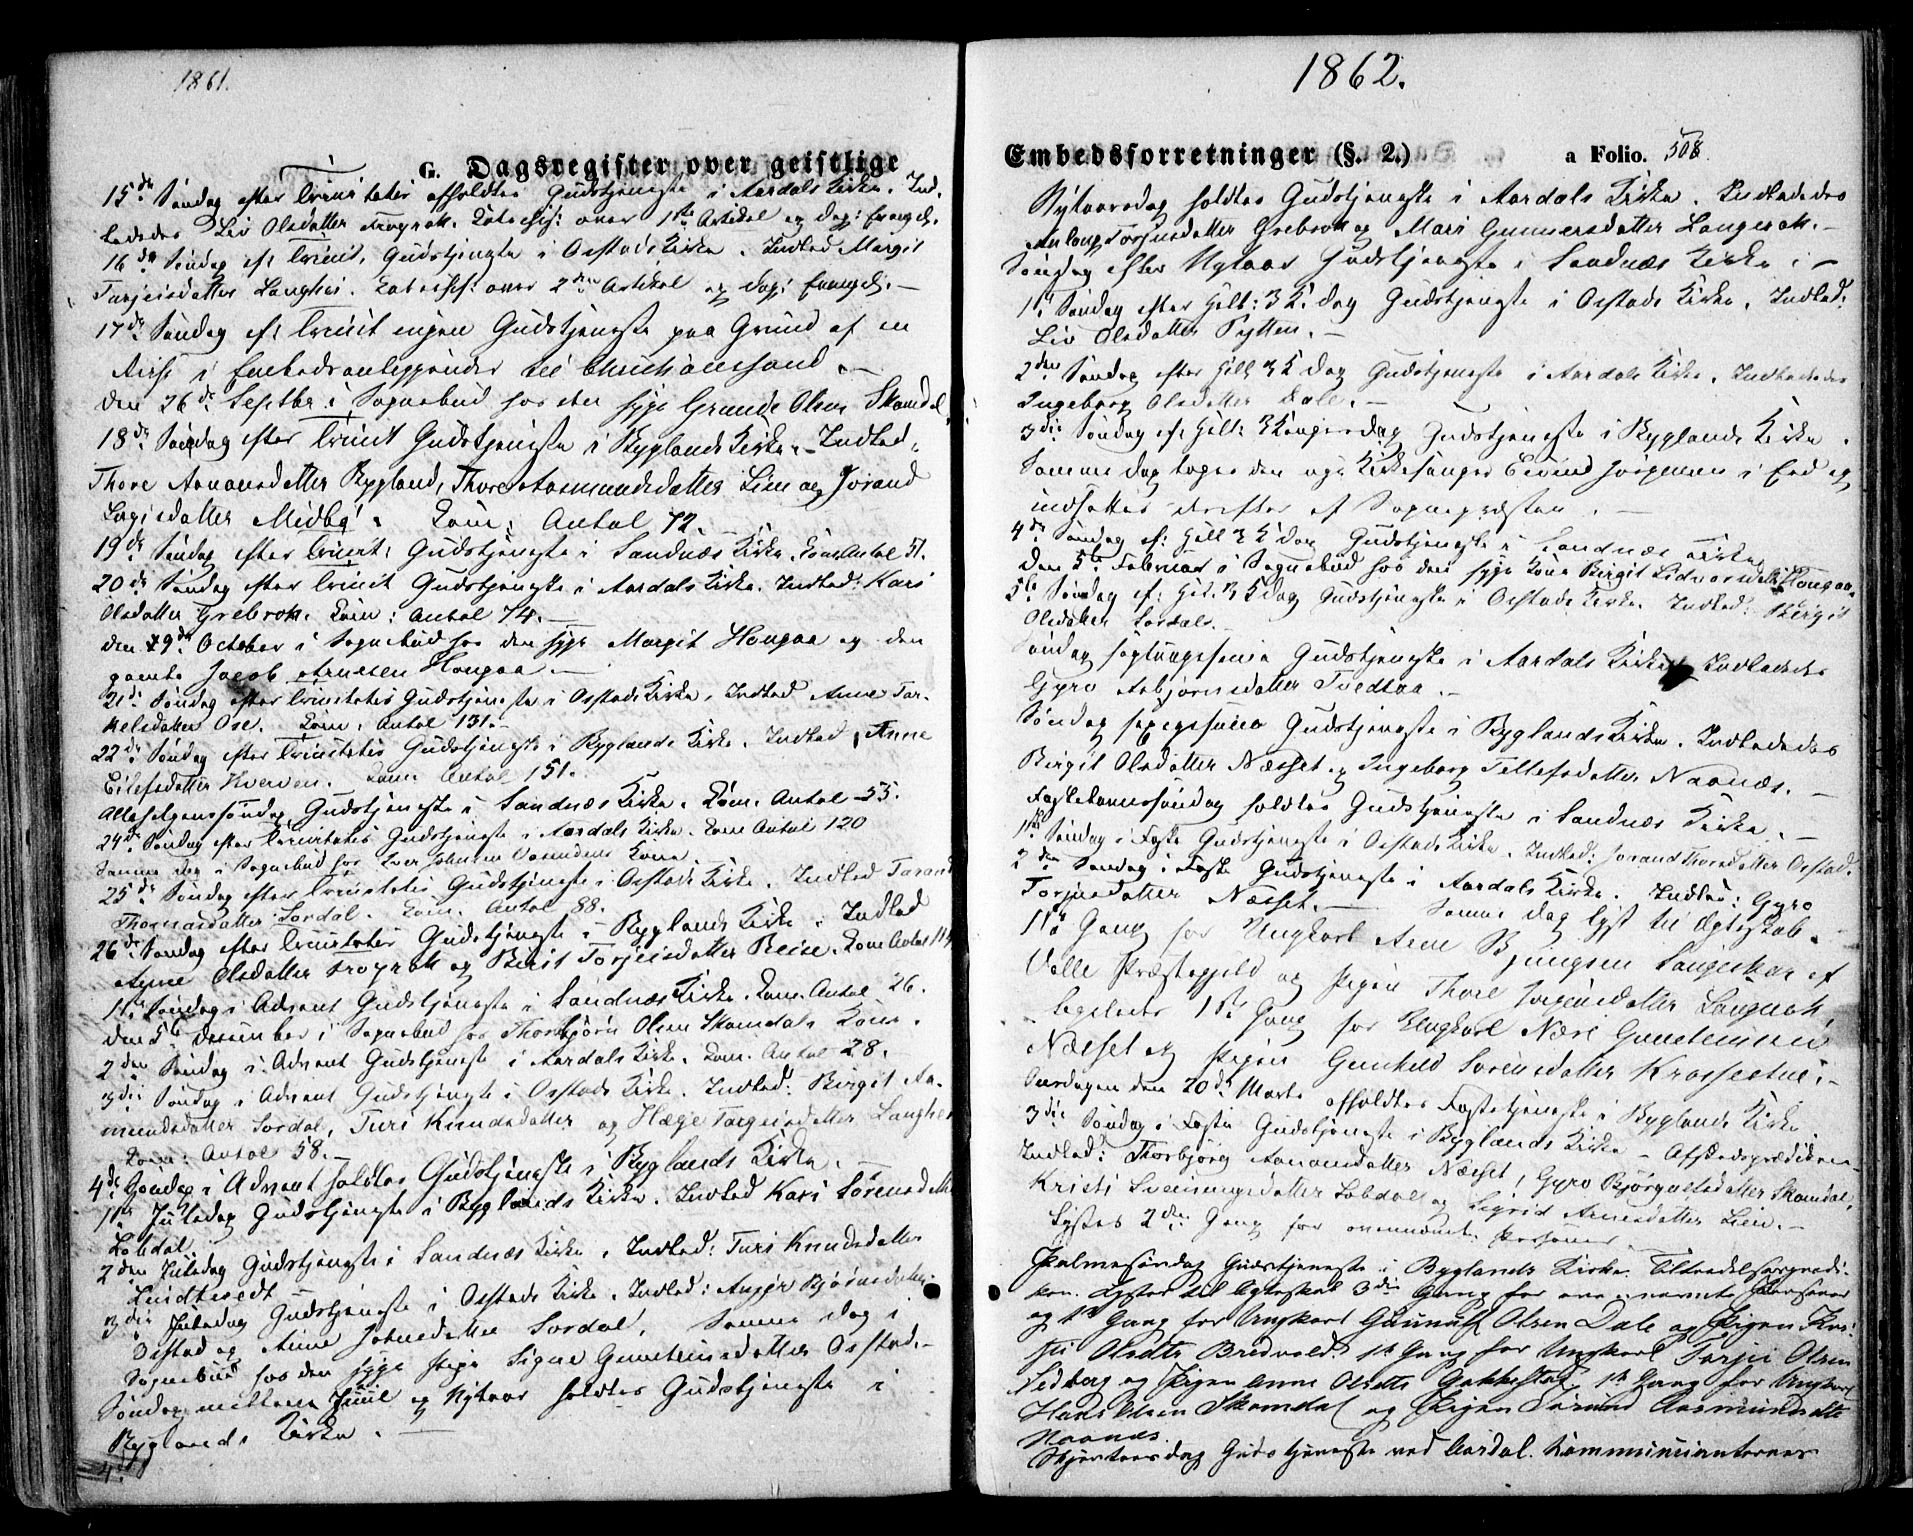 1861.
G. Dagsregister over geistlige
15de Søndag efter Trinitatis afholdtes Gudstjeneste i Aardals Kirke. Ind-
ledede Liv Olsdatter Frøyrak. Catechis: over 1ste Artikel og Dag: Evangel:
16de Søndag ef: Trinit. Gudstjeneste i Oestads Kirke. Indled Margit
Tarjeisdatter Langhei. Catechis: over 2den Artikel og Dag: Evangel: —
17de Søndag ef: Trinit ingen Gudstjeneste paa Grund af en
Reise i Embedsanliggender til Christianssand. —
den 26de Septbr. i Sognebud hos den syge Grunde Olsen Skomdal.
18de Søndag efter Trinit Gudstjeneste i Byglands Kirke. Indled:
Thore Aanonsdatter Bygland, Thore Aasmundsdatter Lien og Jorand
datter Midbø. Com: Antal 72.
19de Søndag efter Trinit: Gudstjeneste i Sandnæs Kirke. Com: Antal 51.
20de Søndag efter Trinit Gudstjeneste i Aardals Kirke. Indled: Kari
Olsdatter Grebrok. Com: Antal 74. —
den 29de October i Sognebud hos den syge Margit Hongaa og den
gamle Jacob Arnesen Hongaa —
21de Søndag efter Trinitatis Gudstjeneste i Oestads Kirke. Indled Anne Tar-
kelsdatter Ose. Com: Antal 131. —
22de Søndag efter Trinitatis Gudstjeneste i Byglands Kirke. Indled, Anne
Eilefsdatter Kverven. Com: Antal 151.
Allehelgenssøndag Gudstjeneste i Sandnæs Kirke. Com. Antal 55.
24de Søndag efter Trinitatis Gudstjeneste i Aardals Kirke. Com Antal 120
Samme dag i Sognebud hos Iver Johnsen Kone
25de Søndag efter Trinitatis Gudstjeneste i Oestads Kirke. Indled Tarand
Thomasdatter Sordal. Com. Antal 88.
26de Søndag efter Trinitatis Gudstjeneste i Byglands Kirke. Indled
Anne Olsdatter Frøyrak og Birit Torjeisdatter Beise. Com Antal 114
1ste Søndag i Advent Gudstjeneste i Sandnæs Kirke. Com. Antal 26.
den 5te December i Sognebud hos Thorbjørn Olsen Skomdals Kone.
2den Søndag i Advent Gudstjeneste i Aardals Kirke. Com. Antal 28.
3die Søndag i Advent Gudstjeneste i Oestads Kirke. Indled: Birgit Aa-
mundsdatter Sordal, Turi Knudsdatter og Hæge Targeisdatter Langhei
Com: Antal 58. —
4de Søndag i Advent holdtes Gudstjeneste i Byglands Kirke. —
1ste Juledag Gudstjeneste i Byglands Kirke. Indled Kari Sørensdatter
Lobdal
2den Juledag Gudstjeneste i Sandnæs Kirke. Indled: Turi Knudsdatter
Lindtvedt
3die Juledag Gudstjeneste i Oestads Kirke. Indled: Bjørnsdatter
Oestad og Anne Johnsdatter Sordal. Samme Dag i
Sognebud hos den syge Pige Signe Gunsteinsdatter Oestad. —
Søndag mellem Juul og Nytaar holdtes Gudstjeneste i
Byglands Kirke. —
1862.
Embedsforretninger (§. 2.) a Folio. 508.
Nytaarsdag holdtes Gudstjeneste i Aardals Kirke. Indledede
Torjusdatter Grebrok og Mari Gunnersdatter Langerak. —
Søndag efter Nytaar Gudstjeneste i Sandnæs Kirke. —
1ste Søndag efter Hell: 3 K. dag Gudstjeneste i Oestads Kirke. Indled:
Liv Olsdatter Pytten. —
2den Søndag efter Hell. 3 K dag Gudstjeneste i Aardals Kirke. Indledede
Ingeborg Olsdatter Dale. —
3die Søndag ef: Hell: 3 Kongersdag Gudstjeneste i Byglands Kirke.
Samme dag toges den nye Kirkesanger Eivind Jørgensen i Eed og
indsattes derefter af Sognepræsten. —
4de Søndag ef: Hell 3 K dag Gudstjeneste i Sandnæs Kirke
den 5te Februar i Sognebud hos den syge Kone Birgit Hongaa.
5te Søndag ef: Hel. 3 K dag Gudstjeneste i Oestads Kirke. Indled: Birgit
Olsdatter Sordal. —
Søndag Septuagesima Gudstjeneste i Aardals Kirke. Indledede
Gyro Asbjørnsdatter Tvedtaa. —
Søndag sexagesima Gudstjeneste i Byglands Kirke. Indledede
Birgit Olsdatter Næsset og Ingeborg Tellefsdatter Naanæs. —
Fastelavnssøndag holdtes Gudstjeneste i Sandnæs Kirke. —
1ste Søndag i Faste Gudstjeneste i Oestads Kirke. Indled: Jorand Thoresdatter Oestad.
2den Søndag i Faste Gudstjeneste i Aardals Kirke. Indled: Gyro
Torjusdatter Næsset. — Samme dag lyst til Ægteskab
1ste Gang for Ungkarl Arne Bjungsen Langeskar af
Valle Præstegjeld og Pigen Thore Jørgensdatter Langerak,
ligeledes 1ste Gang for Ungkarl Næri Gunsteinsen
Næsset og Pigen Gunhild Sørensdatter Krossestue. —
Onsdagen den 20de Marts afholdtes Fastetjeneste i Byglands Kirke
3die Søndag i Faste Gudstjeneste i Byglands Kirke — Afskedsprædiken
Indled: Thorbjørg Aanonsdatter Næsset, Gyro Bjørgulfsdatter Skomdal,
Kristi Sveinungsdatter Lobdal og Sigrid Arnesdatter Lien. —
Lystes 2den Gang for ovennævnte Personer. —
Palmesøndag Gudstjeneste i Byglands Kirke. Tiltrædelsesprædi-
ken. Lystes til Ægteskab 3die Gang for ovennævnte Personer
og 1ste Gang for Ungkarl Gunnulf Olsen Dale og Pigen Kri-
sti Olsdtr Bredvold. 1ste Gang for Ungkarl Tarjei Olsen
Sedberg og Pigen Anne Olsdtr Gakkestad, 1ste Gang for Ungkarl
Hans Olsen Skomdal og Pigen Torund Aasmundsdtr
Naanes.
Skjærtorsdag Gudstjeneste ved Aardal. Kommunicanternes